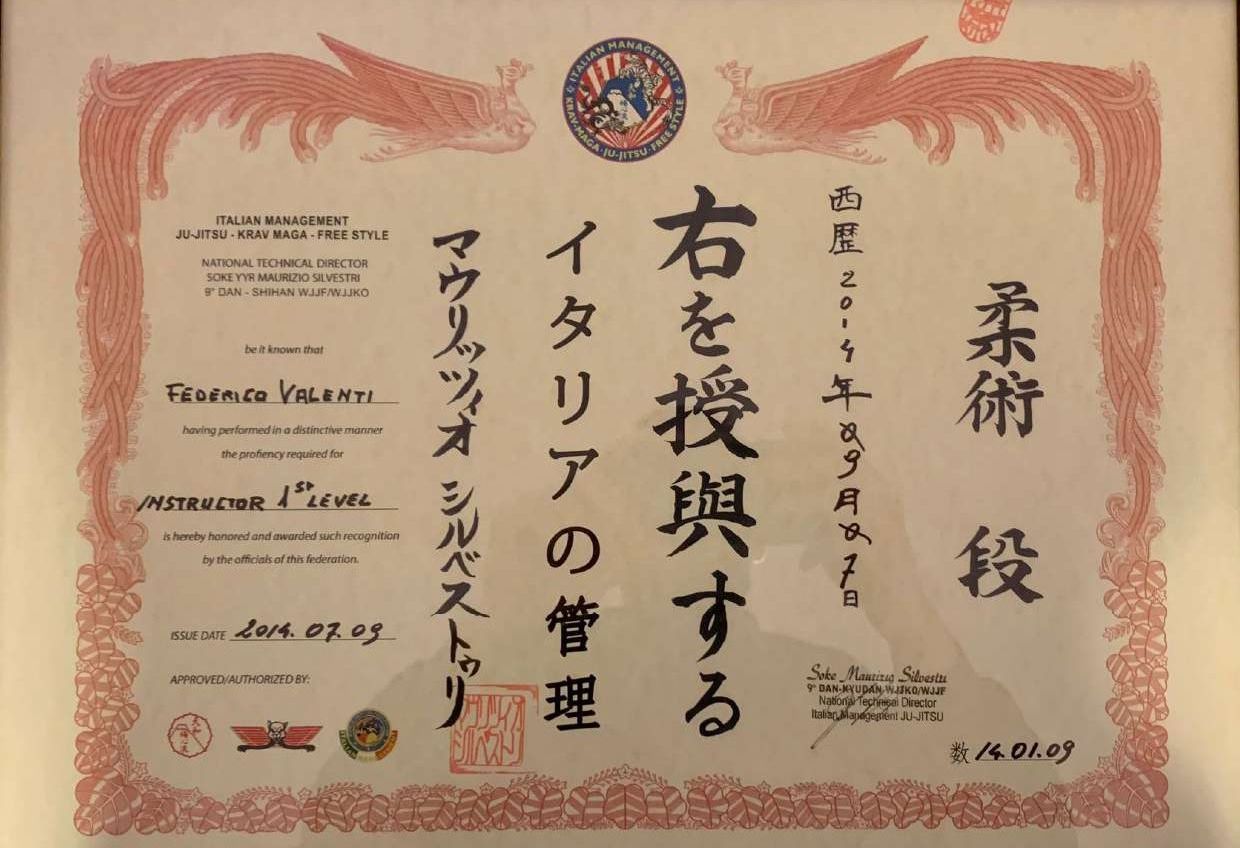 ITALIAN MANAGEMENT
KRAV-MAGA · JU-JITSU · FREE STYLE
柔術 段
西歴2014年09月07日
右を授與する
イタリアの管理
マウリッツィオ シルベストゥリ
ITALIAN MANAGEMENT
JU-JITSU - KRAV MAGA - FREE STYLE
NATIONAL TECHNICAL DIRECTOR
SOKE YYR MAURIZIO SILVESTRI
9° DAN - SHIHAN WJJF/WJJKO
be it known that
FEDERICO VALENTI
having performed in a distinctive manner
the profiency required for
INSTRUCTOR 1ST LEVEL
is hereby honored and awarded such recognition
by the officials of this federation.
ISSUE DATE 2014. 07. 09
APPROVED/AUTHORIZED BY:
Soke Maurizio Silvestri
9° DAN-KYUDAN WJJKO/WJJF
National Technical Director
Italian Management JU-JITSU
数 14.01.09